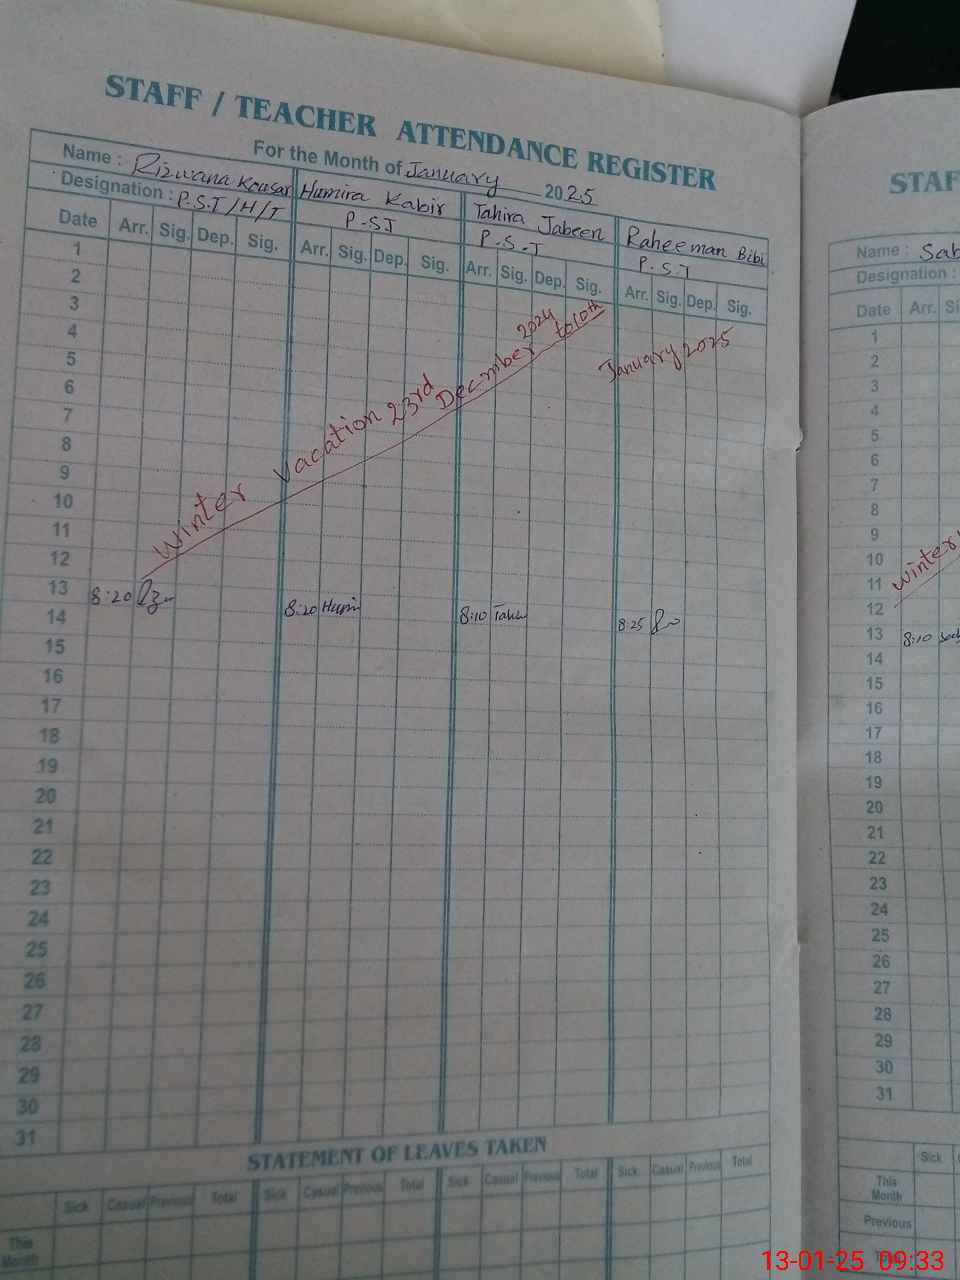 STAFF / TEACHER ATTENDANCE REGISTER
For the Month of January 2025
Name : Rizwana Kousar Humira Kabir Tahira Jabeen Raheeman Bibi
Designation : P.S.T/H/T P.S.T P.S.T P.S.T
Date Arr. Sig. Dep. Sig. Arr. Sig. Dep. Sig. Arr. Sig. Dep. Sig. Arr. Sig. Dep. Sig.
1
2
3
4
5
6
7
8
9
10
11
12
Winter Vacation 23rd December 2024 to 10th January 2025
13 8:20 8:20 8:10 8:25
14
15
16
17
18
19
20
21
22
23
24
25
26
27
28
29
30
31
STATEMENT OF LEAVES TAKEN
Sick Casual Previous Total Sick Casual Previous Total Sick Casual Previous Total Sick Casual Previous Total
This Month
STAF
Name : Sab
Designation :
Date Arr. Si
1
2
3
4
5
6
7
8
9
10
11
12
winter
13 8:10
14
15
16
17
18
19
20
21
22
23
24
25
26
27
28
29
30
31
Sick
This Month
Previous
13-01-25 09:33